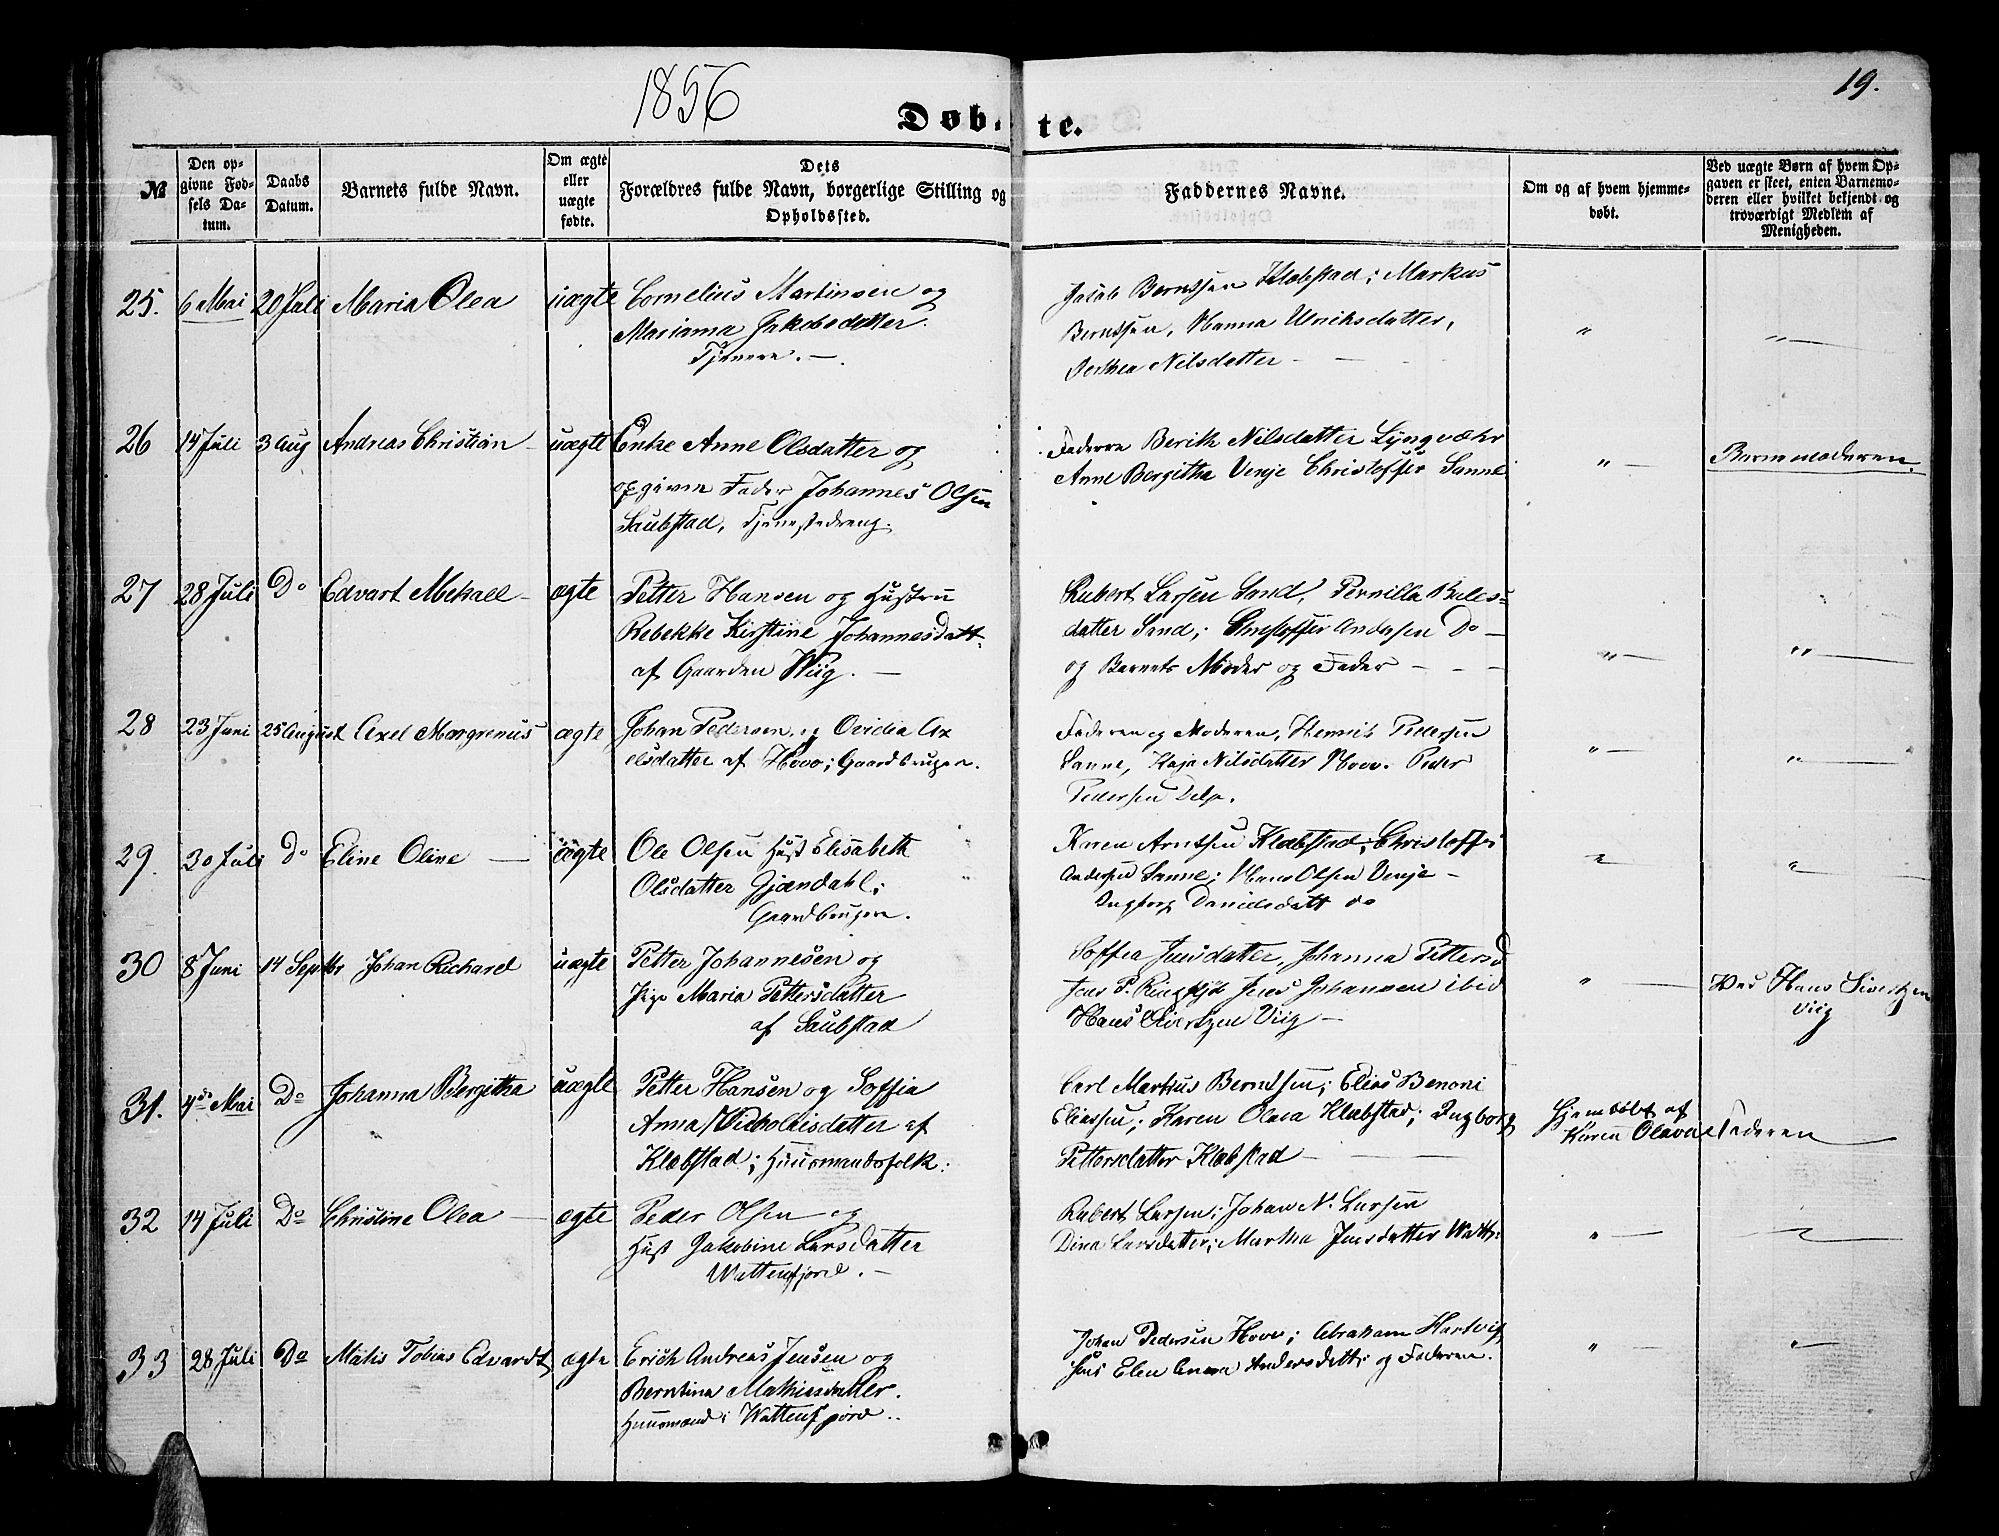 1856
19.
Døbte.
№
Den opgivne Fødsels Datum.
Daabs Datum.
Barnets fulde Navn.
Om ægte eller uægte fødte.
Dets Forældres fulde Navn, borgerlige Stilling og Opholdssted.
Faddernes Navne.
Om og af hvem hjemmedøbt.
Ved uægte Børn af hvem Opgaven er skeet, enten Barnemoderen eller hvilket bekjendt og troværdigt Medlem af Menigheden.
25. 6 Mai 20 Juli Maria Olea uægte Cornelius Martinsen og
Marianna Jakobsdatter.
Tjenere. —
Jacob Berntsen Klæbstad; Markus
Berntsen, Hanna Ulriksdatter,
Dorthea Nilsdatter —
26 14 Juli 3 Aug Andreas Christian uægte Enke Anne Olsdatter og
opgiven Fader Johannes Olsen
Saubstad, Tjenestedreng.
Faderen Berith Nilsdatter Lyngvæhr
Anne Bergitha Venje Christoffer Sanne
" — Barnemoderen.
27 28 Juli Do Edvart Mekael — ægte Petter Hansen og Hustru
Rebekke Kirstine Johannesdatt.
af Gaarden Wiig. —
Rubert Larsen Sand, Pernilla
datter Sand; Christoffer Andersen Do —
og Barnets Moder og Fader - - -
" — " —
28 23 Juni 25 August Axel Magrenus ægte Johan Pedersen og Ovidia Ax
elsdatter af Hove; Gaardbruger.
Faderen og Moderen, Henrik Pedersen
Sanne, Kaja Nilsdatter Hove. Peder
Pedersen Delp.
" — " —
29. 30 Juli Do Eline Oline — ægte Ole Olsen Hust Elisabeth
Olsdatter Gjændahl;
Gaardbruger.
Karen Arntsen Klæbstad; Christoffer
Andersen Sanne; Hans Olsen Venje -
Ingborg Danielsdatt do
30 8 Juni 14 Septbr Johan Richard uægte Petter Johannesen og
Pige Maria Pettersdatter
af Saubstad
Soffia Jensdatter, Johanna Pettersd
Jens P. Jens Johansen ibid
Hans Sivertzen Viig —
" — Ved Hans Sivertzen
Viig
31. 4de Mai Do Johanna Bergitha uægte Petter Hansen og Soffia
Anna Nicholaisdatter af
Klæbstad; Huusmandsfolk.
Carl Martius Berndtsen; Elias Benoni
Eliassen; Karen Olava Klæbstad; Ingborg
Pettersdatter Klæbstad —
Hjemdøbt af
Karen Olava Faderen
32 14 Juli Do Christine Olea — ægte Peder Olsen og
Hust Jakobine Larsdatter
Wattenfjord. —
Rubert Larsen; Johan N. Larsen
Dina Larsdatter; Martha Jensdatter Watt:
" —
33 28 Juli Do Matis Tobias Edvardt ægte Erich Andreas Jensen og
Berntina Mathiasdatter.
Huusmand i Wattenfjord.
Johan Pedersen Hove; Abraham Hartvig
sen Elen Anna Andersdatt. og Faderen.
" — "